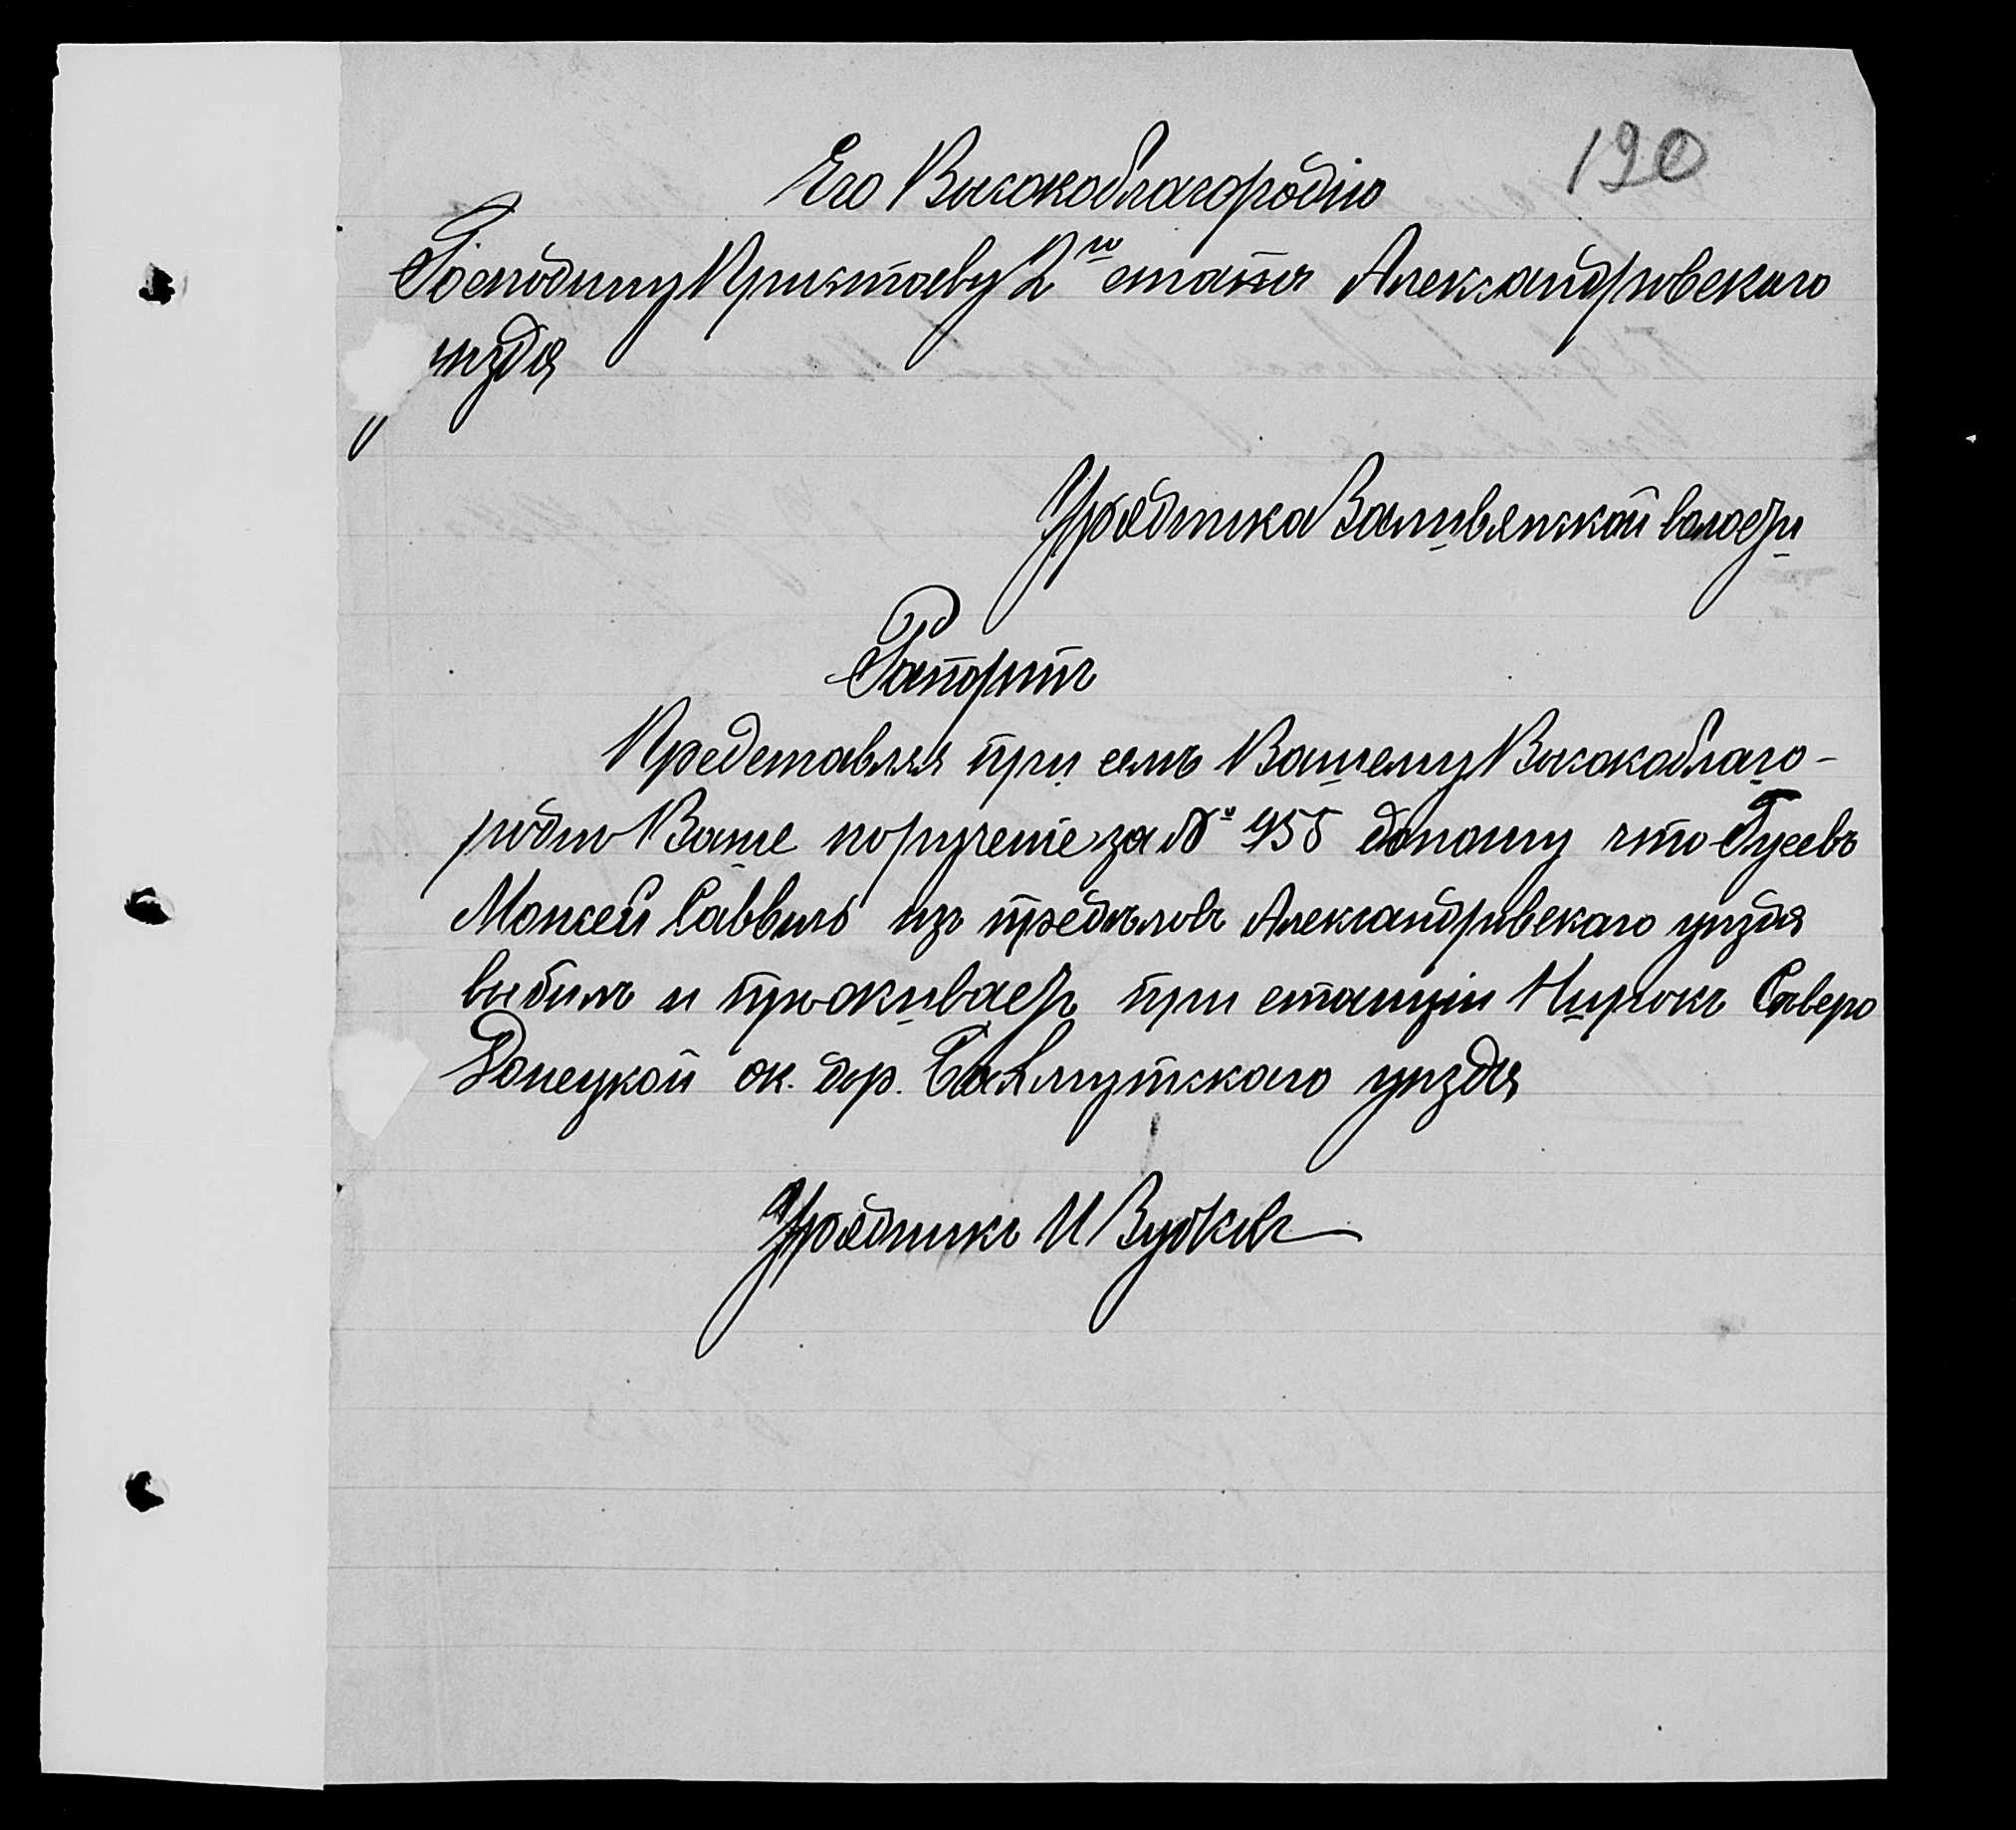 190
Его Высокоблагородію
Господину Приставу 2го стана Александровскаго
уѣзда
Урядника Васильевской волости
Рапортъ
Представляя при семъ Вашему Высокоблаго-
родію Ваше порученіе за № 955 доношу что Гусевъ
Моисей Саввичъ изъ предѣловъ Александровскаго уѣзда
выбылъ и проживаетъ при станціи Ныркъ Сѣверо
Донецкой ж. дор. Бахмутскаго уѣзда
Урядникъ И